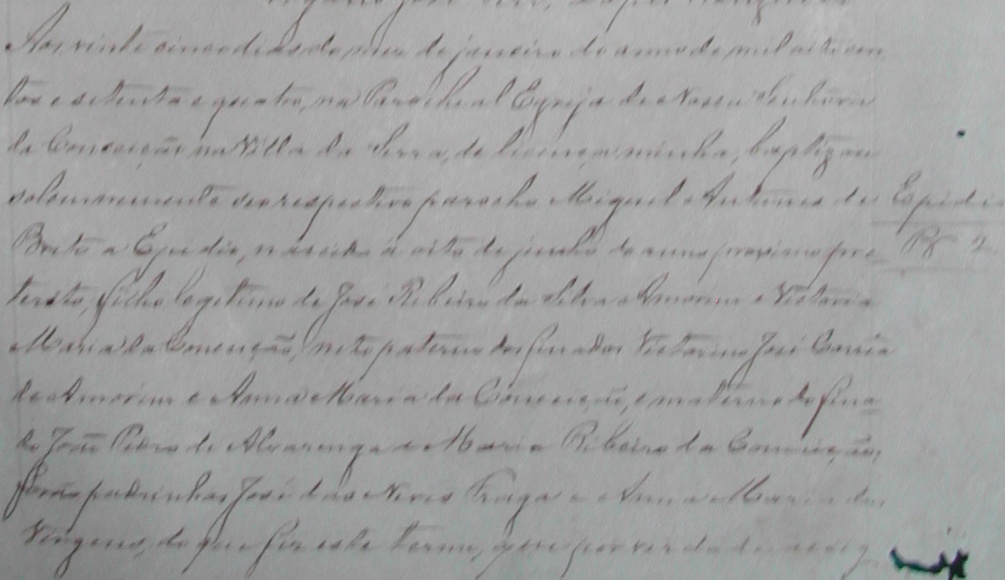 Aos vinte cinco dias do mez de janeiro do anno de mil oito cen
tos e setenta e quatro, na Parochial Egreja de Nossa Senhora
da Conceição na Villa da Serra, de licença minha, baptizou
solemnemente o respectivo parocho Miguel Antunes de
Brito a Epidio, nascido á oito de junho do anno proximo pre
terito, filho legitimo de José Ribeiro da Silva Amorim e Victoria
Maria da Conceição, neto paterno dos finados Victorino José Corrêa
de Amorim e Anna Maria da Conceição, e materno do fina
do João Pedro de Alvarenga e Maria Ribeiro da Conceição,
Forão padrinhos José das Neves Fraga e Anna Maria das
Virgens, do que fiz este termo, que por verdade assig
Epidi
Pg 2